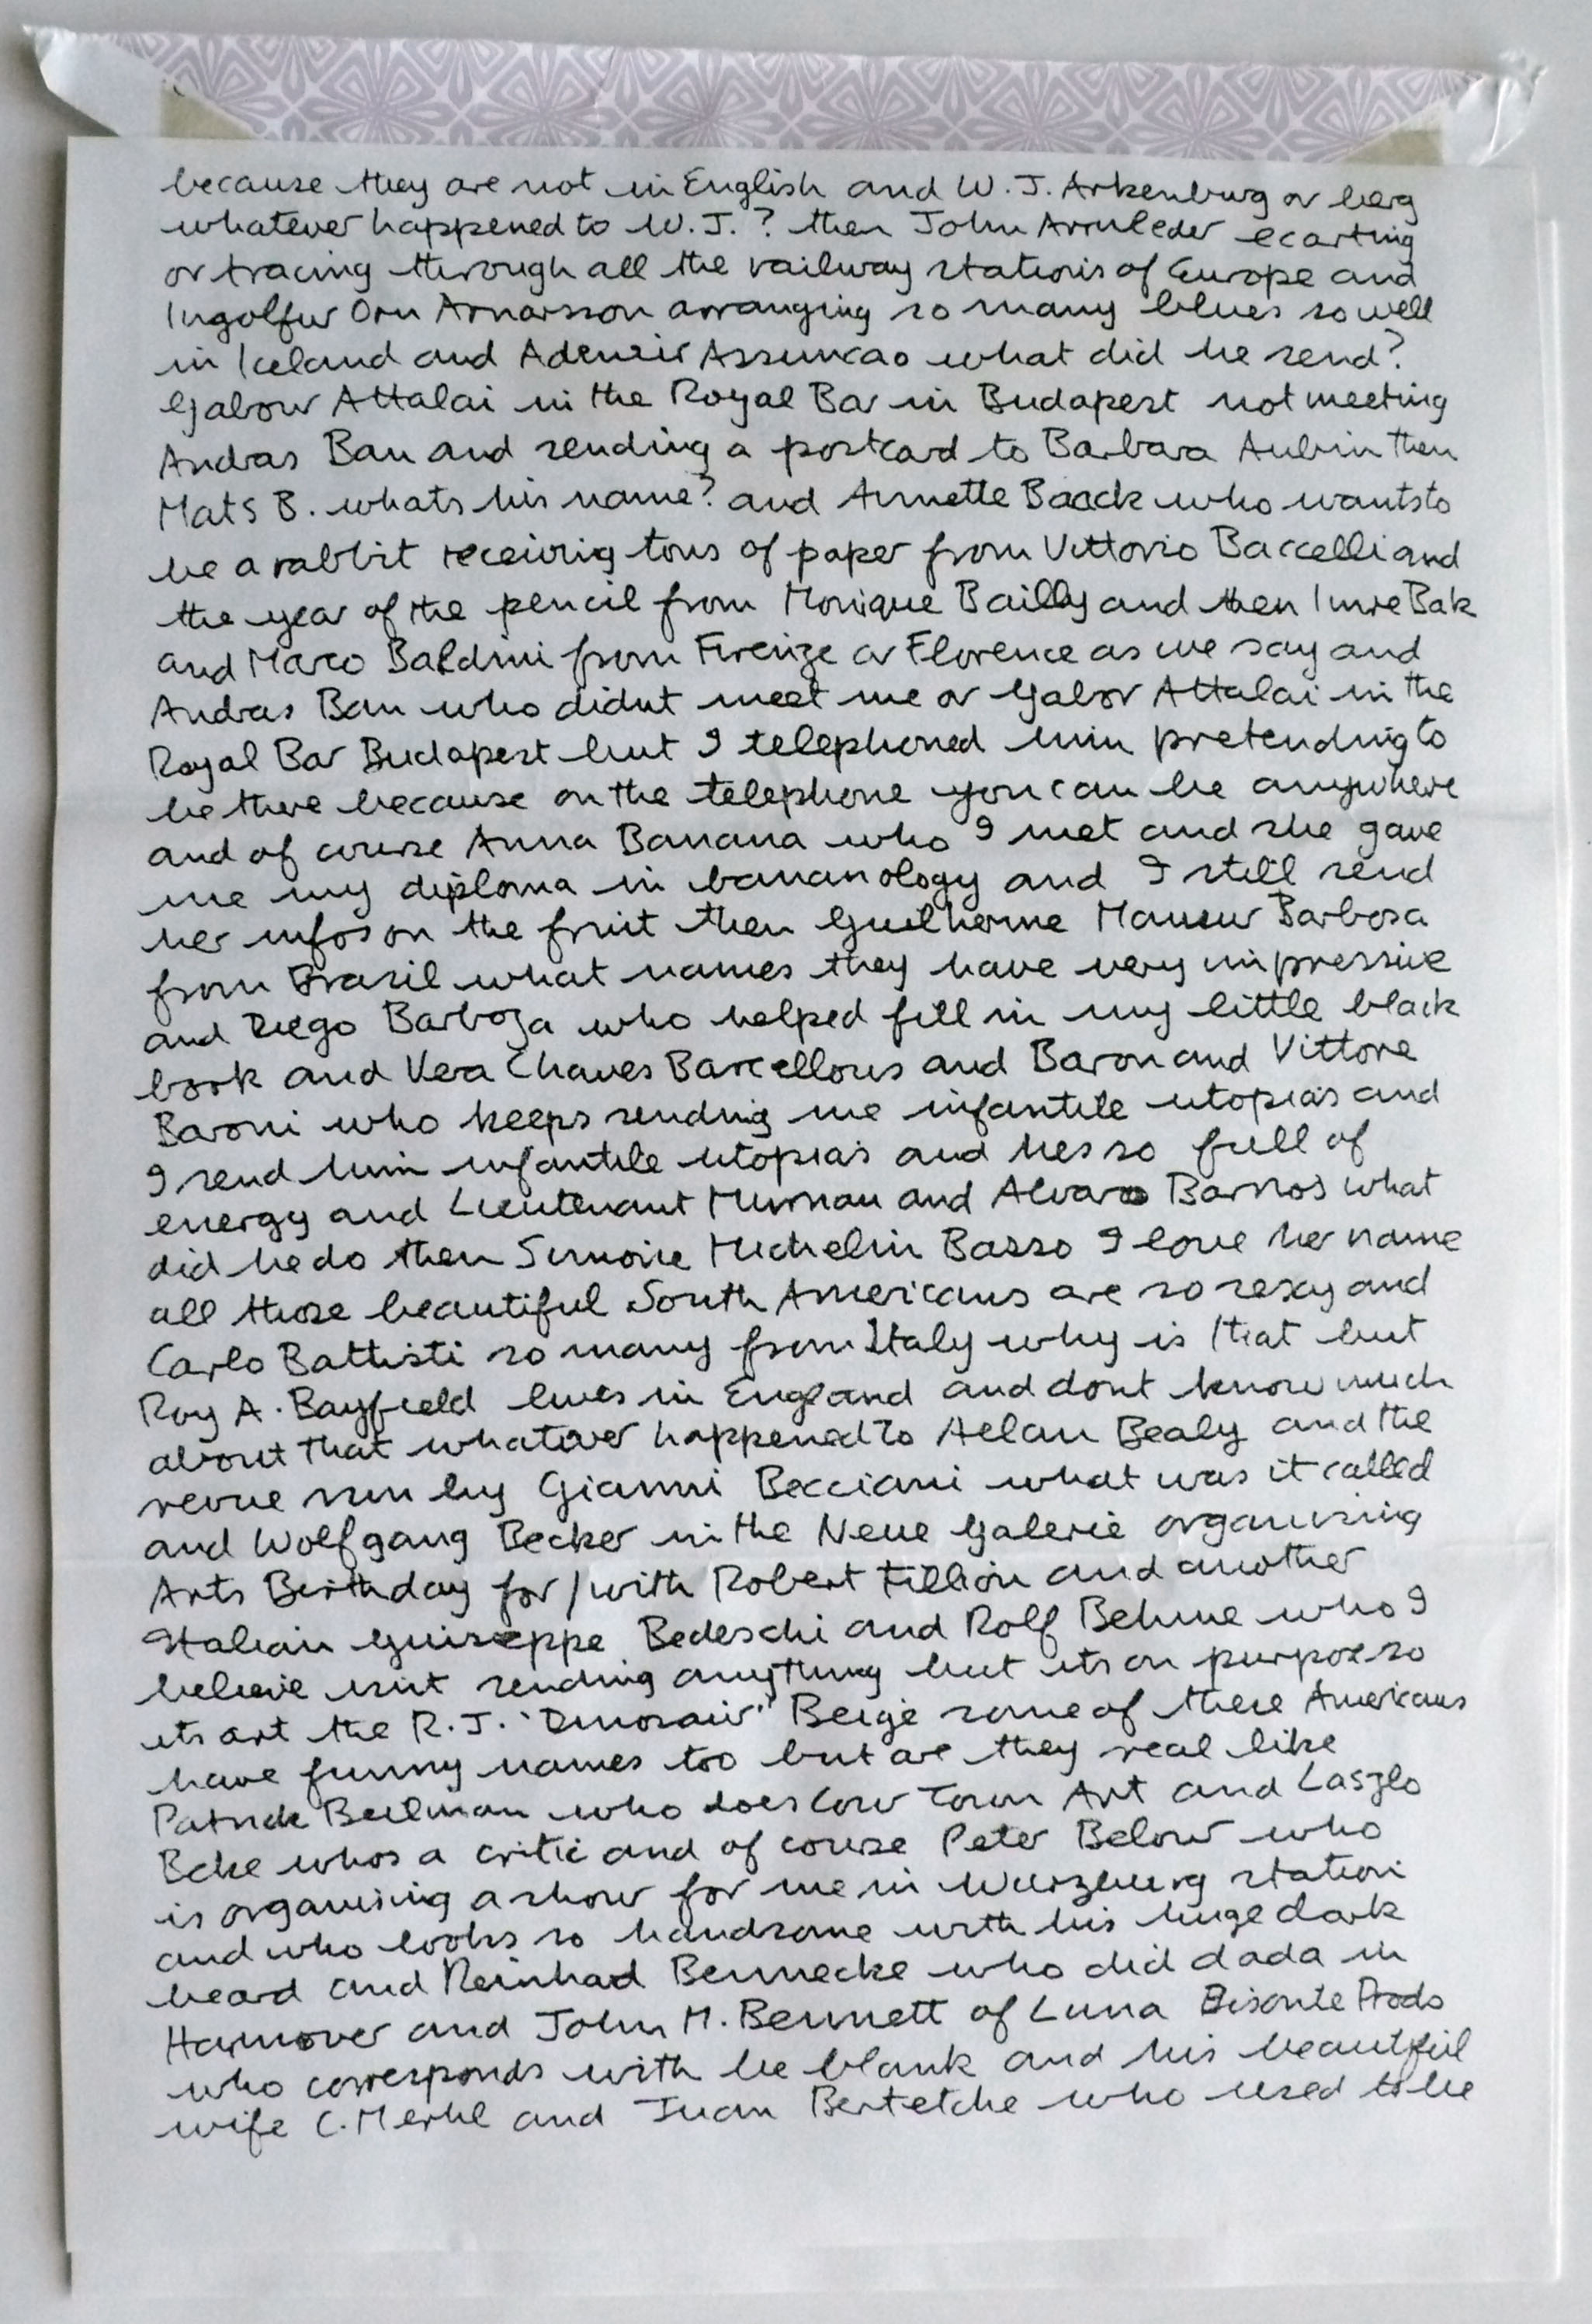 because they are not in English and W. J. Arkenburg or berg
whatever happened to W. J.? then John Armleder ecarting
or tracing through all the railway stations of Europe and
Ingolfur Orn Arnarsson arranging so many blues so well
in Iceland and Adenzir Assuncao what did he send?
Gabour Attalai in the Royal Bar in Budapest not meeting
Andras Ban and sending a postcard to Barbara Aubin then
Mats B. whats his name? and Annette Baack who wants to
be a rabbit receivig tons of paper from Vittorio Baccelli and
the year of the pencil from Monique Bailly and then Imre Bak
and Marco Baldini from Firenze or Florence as we say and
Andras Ban who didnt meet me or Gabor Attalai in the
Royal Bar Budapest but I telephoned him pretending to
be there because on the telephone you can be anywhere
and of course Anna Banana who I met and she gave
me my diploma in bananology and I still send
her infos on the fruit then Guilherme Mansur Barbosa
from Brazil what names they have very impressive
and Diego Barboza who helped fill in my little black
book and Vera Chaves Barcellous and Baron and Vittore
Baroni who keeps sending me infantile utopias and
I send him infantile utopias and hes so full of
energy and Lieutenant Murnau and Alvaro Barrios what
did he do then Simone Michelin Basso I love her name
all those beautiful South Americans are so sexy and
Carlo Battisti so many from Italy why is that but
Roy A. Bayfield lives in England and dont know much
about that whatever happened to Aelan Bealy and the
revue run by Gianni Becciani what was it called
and Wolfgang Becker in the Neue Galerie organising
Arts Birthday for/with Robert Fillion and another
Italian Guiseppe Bedeschi and Rolf Behme who I
believe isnt sending anything but its on purpose so
its art the R. J. "Dinosaur" Beige some of these Americans
have funny names too but are they real like
Patrick Beilman who does Cow Town Art and Laszlo
Beke whos a critic and of course Peter Below who
is organising a show for me in Wurzburg station
and who looks so handsome with his huge dark
beard and Reinhard Bennecke who did dada in
Hannover and John M. Bennett of Luna Bisonte Prods
who corresponds with be blank and his beautiful
wife C. Mehl and Juan Bertetche who used to be